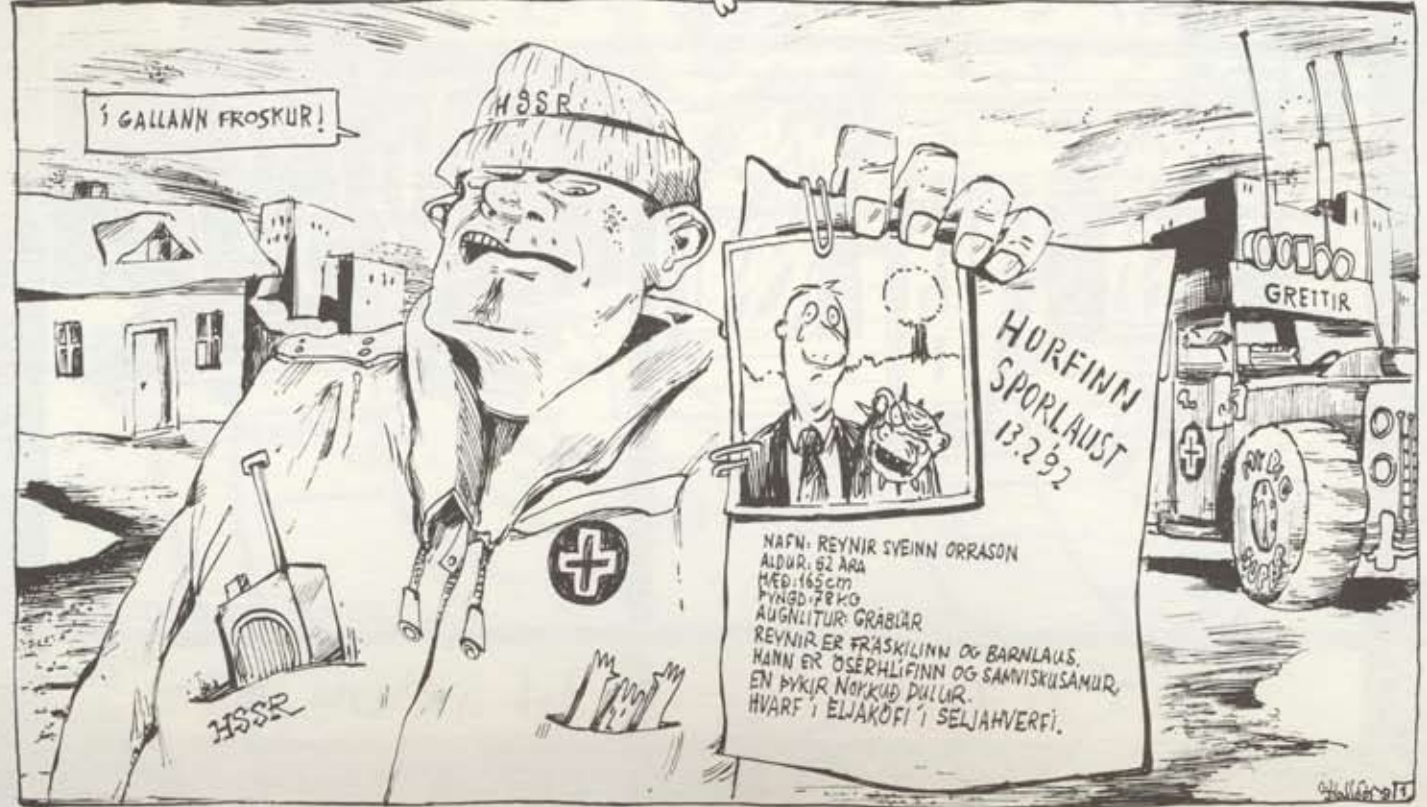 Í GALLANN FROSKUR!
HSSR
GRETTIR
HORFINN
SPORLAUST
13.2.'92
NAFN: REYNIR SVEINN ORRASON
ALDUR: 62 ÁRA
HÆÐ: 165 cm
ÞYNGD: 78 KG
AUGNLITUR: GRÁBLÁR
REYNIR ER FRÁSKILINN OG BARNLAUS.
HANN ER ÓSÉRHLÍFINN OG SAMVISKUSAMUR,
EN ÞYKIR NOKKUÐ DULUR.
HVARF Í ÉLJAKÓFI Í SELJAHVERFI.
HSSR
1